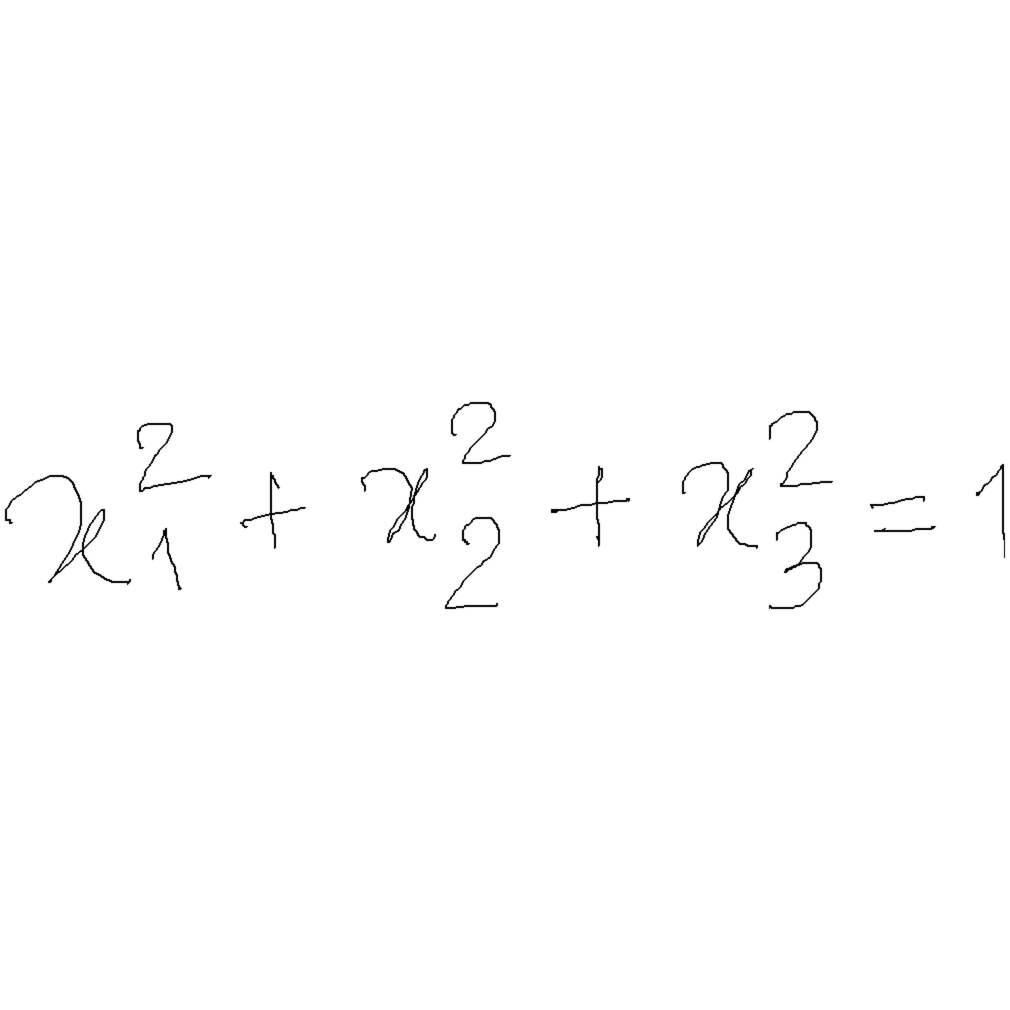 $x_1^2 + x_2^2 + x_3^2 = 1$